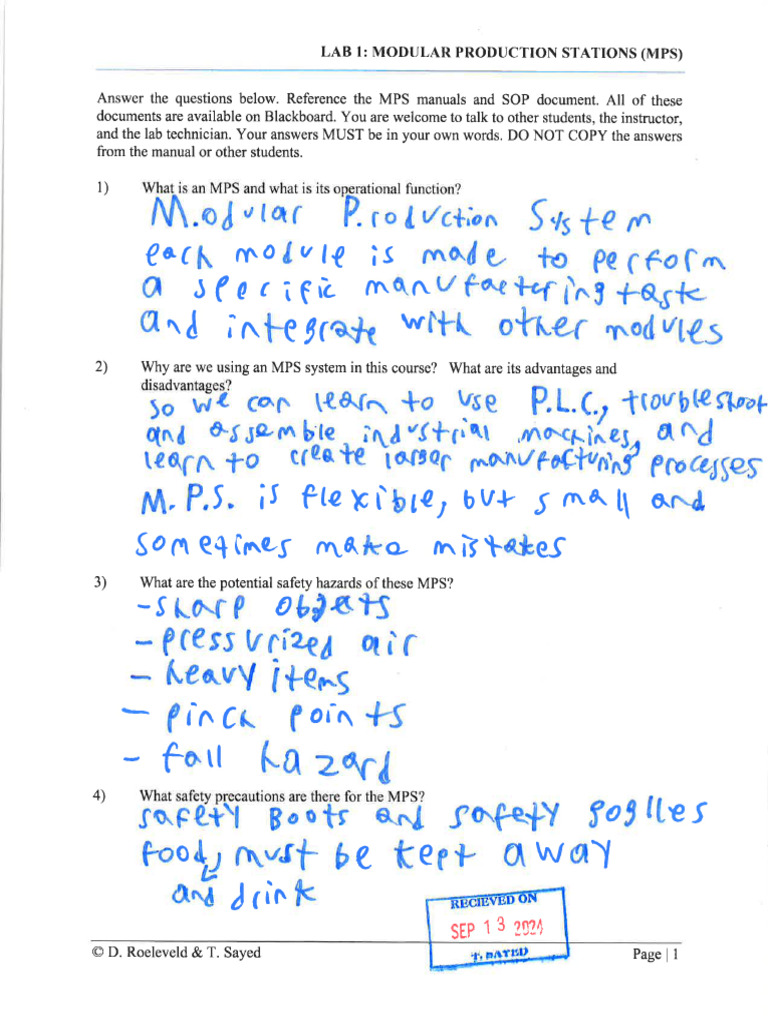 LAB 1: MODULAR PRODUCTION STATIONS (MPS)
Answer the questions below. Reference the MPS manuals and SOP document. All of these
documents are available on Blackboard. You are welcome to talk to other students, the instructor,
and the lab technician. Your answers MUST be in your own words. DO NOT COPY the answers
from the manual or other students.
1) What is an MPS and what is its operational function?
M.odular P.roduction System
each module is made to perform
a specific manufactering task
and integrate with other modules
2) Why are we using an MPS system in this course? What are its advantages and
disadvantages?
so we can learn to use P.L.C., troubleshoot
and assemble industrial machines, and
learn to create larger manufacturing processes
M.P.S. is flexible, but small and
sometimes make mistakes
3) What are the potential safety hazards of these MPS?
-sharp objects
- pressurized air
- heavy items
- pinch points
- fall hazard
4) What safety precautions are there for the MPS?
safety Boots and safety goglles
food, must be kept away
and drink
RECIEVED ON
SEP 13 2024
T. SAYED
© D. Roeleveld & T. Sayed Page | 1